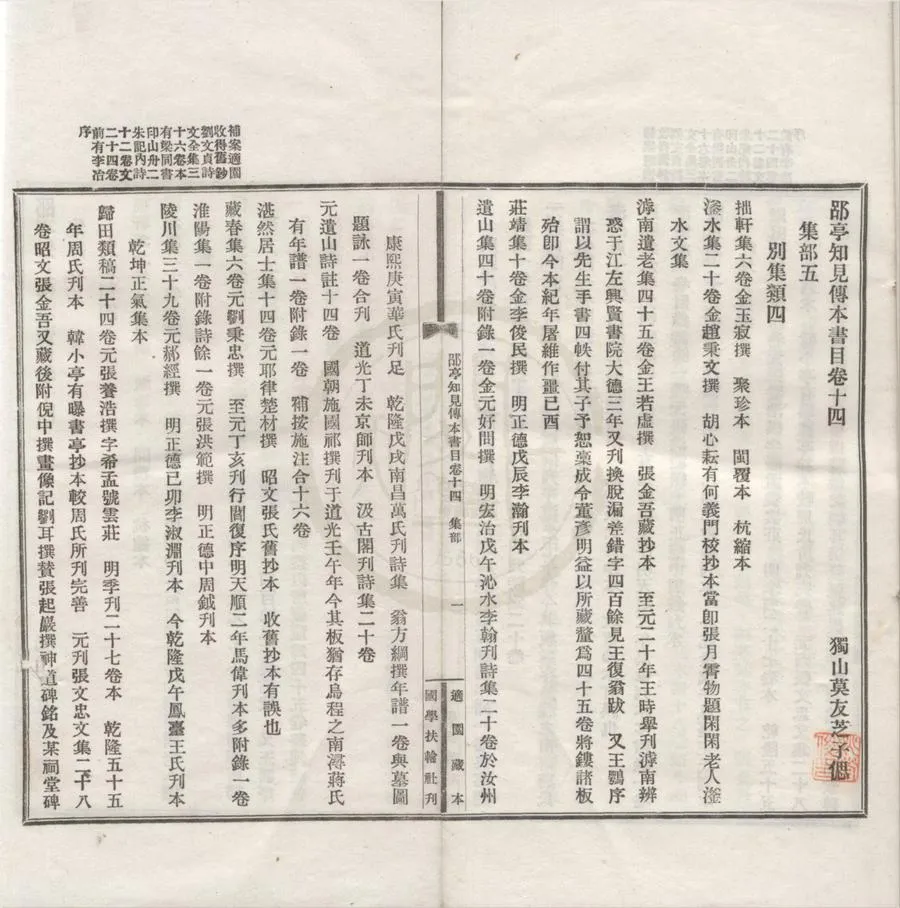 郘亭知見傳本書目卷十四
獨山莫友芝子偲
集部五
別集類四
拙軒集六卷金王寂撰 聚珍本 閩覆本 杭縮本
滏水集二十卷金趙秉文撰 胡心耘有何義門校抄本當卽張月霄物題閑閑老人滏
水文集
滹南遺老集四十五卷金王若虛撰 張金吾藏抄本 至元二十年王時舉刊滹南辨
惑于江左興賢書院大德三年又刊換脫漏差錯字四百餘見王復翁跋 又王鶚序
謂以先生手書四帙付其子予恕槀成令董彥明益以所藏釐爲四十五卷將鏤諸板
殆卽今本紀年屠維作噩已酉
莊靖集十卷金李俊民撰 明正德戊辰李瀚刊本
遺山集四十卷附錄一卷金元好問撰 明宏治戊午沁水李翰刊詩集二十卷於汝州
郘亭知見傳本書目卷十四 集部 一
適園藏本
國學扶輪社刊
康熙庚寅華氏刊足 乾隆戊戌南昌萬氏刊詩集 翁方綱撰年譜一卷與墓圖
題詠一卷合刊 道光丁未京師刊本 汲古閣刊詩集二十卷
元遺山詩註十四卷 國朝施國祁撰刊于道光壬午年今其板猶存烏程之南潯蔣氏
有年譜一卷附錄一卷 補按施注合十六卷
湛然居士集十四卷元耶律楚材撰 昭文張氏舊抄本 收舊抄本有誤也
藏春集六卷元劉秉忠撰 至元丁亥刋行閻復序明天順二年馬偉刊本多附錄一卷
淮陽集一卷附錄詩餘一卷元張洪範撰 明正德中周鉞刊本
陵川集三十九卷元郝經撰 明正德已卯李淑淵刊本 今乾隆戊午鳳臺王氏刊本
乾坤正氣集本
歸田類稿二十四卷元張養浩撰字希孟號雲莊 明季刊二十七卷本 乾隆五十五
年周氏刊本 韓小亭有曝書亭抄本較周氏所刊完善 元刊張文忠文集二十八
卷昭文張金吾又藏後附倪中撰畫像記劉耳撰贊張起巖撰神道碑銘及某祠堂碑
補案適園
收得舊鈔
劉文貞詩
文全集三
十六卷本
有梁同書
印山舟二
朱記內詩
十二卷文
二十四卷
前有李冶
序